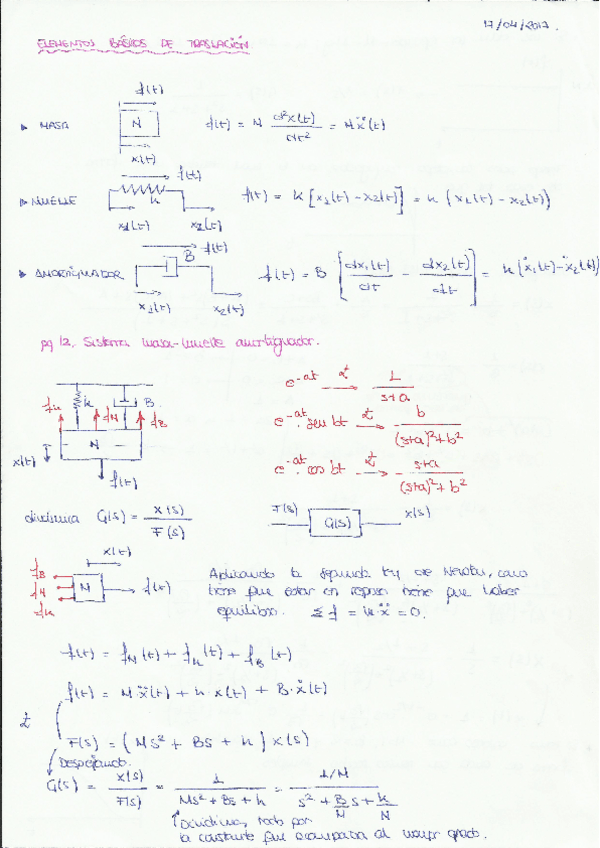 17/04/2013.
ELEMENTOS BÁSICOS DE TRASLACIÓN
f(t)
▶ MASA M f(t) = M d²x(t)/dt² = M ẍ(t)
x(t)
f(t)
▶ MUELLE k f(t) = k [x₁(t) - x₂(t)] = k (x₁(t) - x₂(t))
x₁(t) x₂(t)
f(t)
▶ AMORTIGUADOR B f(t) = B [dx₁(t)/dt - dx₂(t)/dt] = k (ẋ₁(t) - ẋ₂(t))
x₁(t) x₂(t)
pg 12, Sistema masa-muelle amortiguador.
k B
fk fM fB
M
x(t)
f(t)
e^-at ℒ→ 1/(s+a)
e^-at · sen bt ℒ→ b/((s+a)²+b²)
e^-at · cos bt ℒ→ (s+a)/((s+a)²+b²)
G(s) = X(s)/F(s)
F(s) G(s) X(s)
x(t)
fB
fM M f(t)
fk
Aplicando la segunda ley de Newton, como
tiene que estar en reposo tiene que haber
equilibrio. Σf = ẍ = 0.
f(t) = fM(t) + fk(t) + fB(t)
f(t) = M ẍ(t) + k · x(t) + B · ẋ(t)
ℒ
F(s) = (Ms² + Bs + k) X(s)
Despejando.
G(s) = X(s)/F(s) = 1/(Ms² + Bs + k) = (1/M)/(s² + B/M s + k/M)
↑ Dividimos todo por
la constante que acompaña al mayor grado.